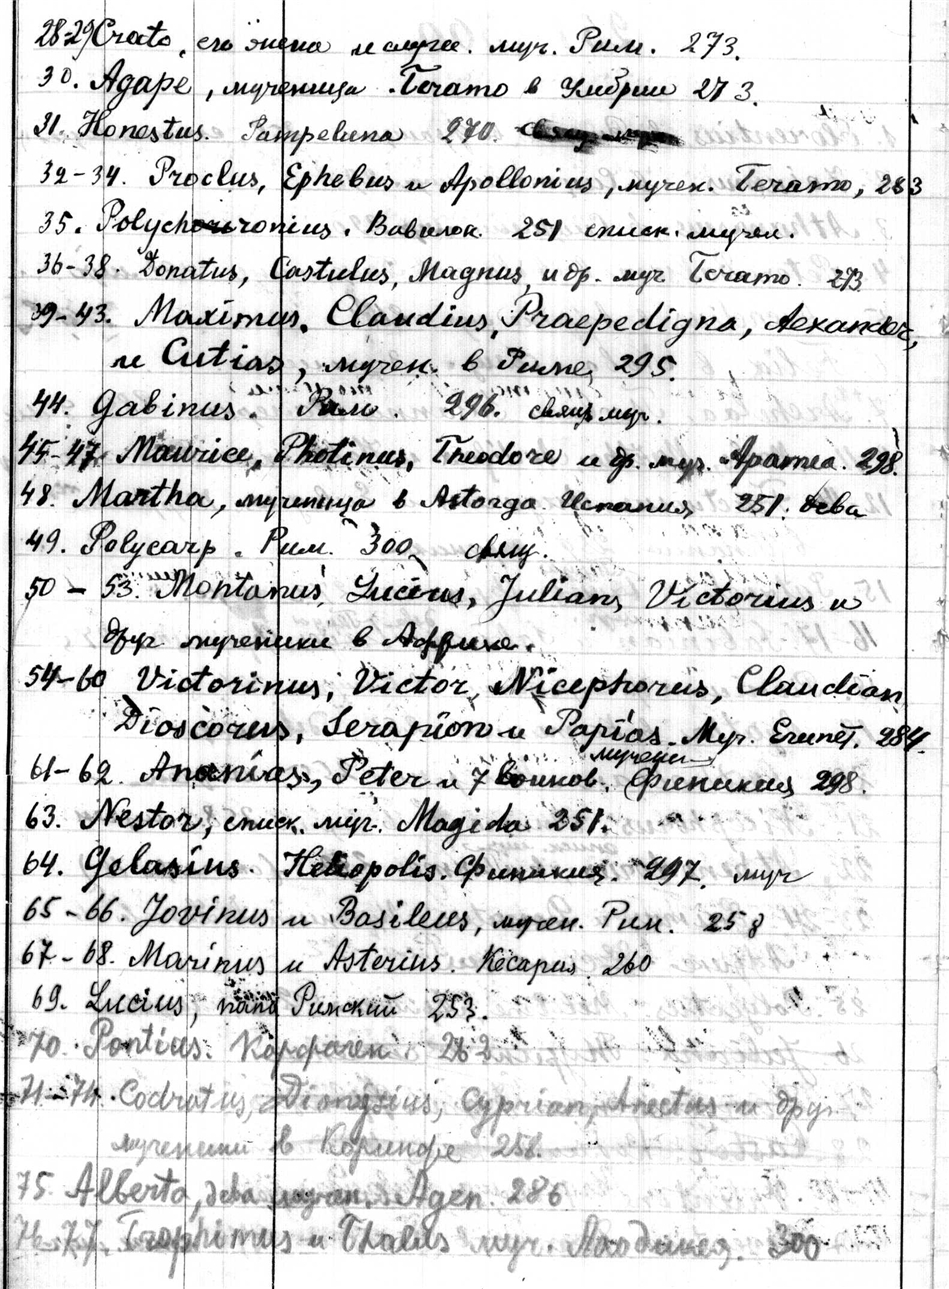 28-29) Crato, его жена и слуги. муч. Рим. 273.
30. Agape, мученица. Teramo в Умбрии 273.
31. Honestus. Pampeluna 270.
32-34. Proclus, Ephebus и Apollonius, мучен. Teramo, 283
35. Polychronius. Вавилон 251 еписк. мучен.
36-38. Donatus, Castulus, Magnus, и др. муч Teramo. 273
39-43. Maximus, Claudius, Praepedigna, Aexander,
и Cutias, мучен. в Риме, 295.
44. Gabinus. Рим. 296. свящ. муч.
45-47 Maurice, Photinus, Theodore и др. муч. Apamea. 298.
48. Martha, мученица в Astorga Испания, 251. дева
49. Polycarp. Рим. 300, свящ.
50-53. Montanus, Lucius, Julian, Victorius и
друг мученики в Африке.
54-60 Victorinus, Victor, Nicephorus, Claudian
Dioscorus, Serapion и Papias. Муч. Египет. 284.
61-62. Ananias, Peter и 7 воинов. мученики Финикия 298.
63. Nestor, еписк. муч. Magida 251.
64. Gelasius. Heliopolis. Финикия. 297. муч
65-66. Jovinus и Basileus, мучен. Рим. 258
67-68. Marinus и Asterius. Кесария. 260
69. Lucius, папа Римский 253.
70. Pontius. Карфаген 262
71-74. Codratus, Dionysius, Cyprian, Anectus и друг.
мученики в Коринфе 258.
75 Alberta, дева мучен. Agen. 286
76-77. Trophimus и Thalus муч. Лаодикея. 300